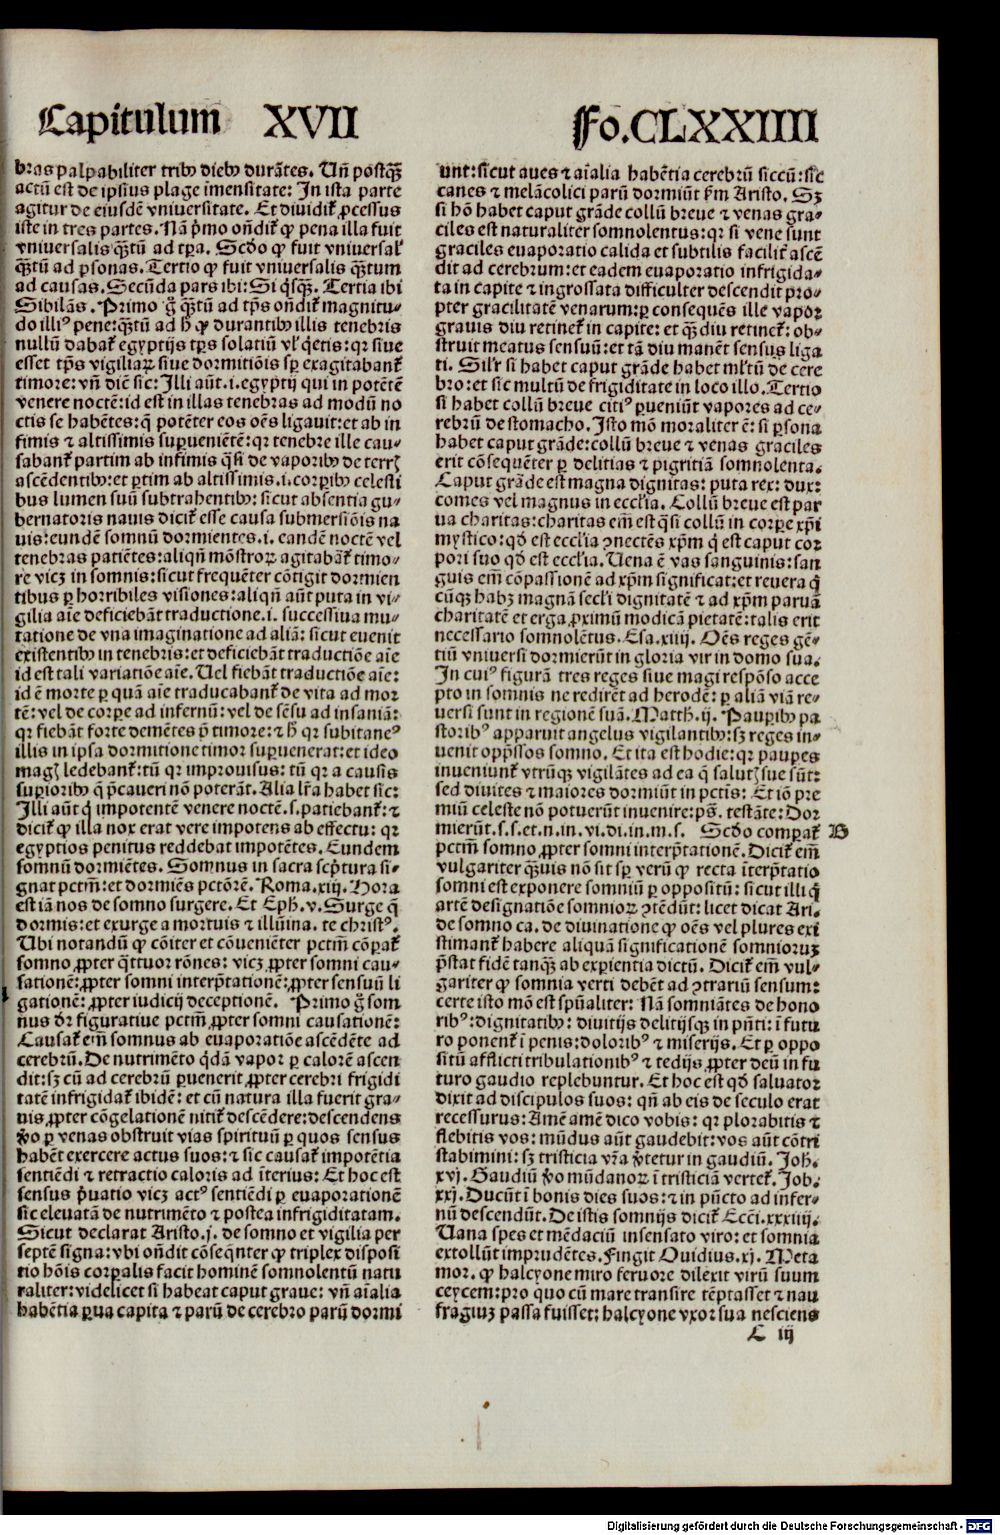 Capitulum XVII
Fo.CLXXIIII
bras palpabiliter tribꝰ diebꝰ durātes. Vñ postq̄ꝫ
actū est de ipsius plage imensitate: In ista parte
agitur de eiusdē vniuersitate. Et diuidit᷑ ꝓcessus
iste in tres partes. Nā p̄mo oñdit᷑ ꝙ pena illa fuit
vniuersalis q̄ꝫtū ad tꝑa. Scd̓o ꝙ fuit vniuersal̓
q̄ꝫtū ad ꝑsonas. Tertio ꝙ fuit vniuersalis q̄ꝫtum
ad causas. Secūda pars ibi: Si q̓sqꝫ. Tertia ibi
Sibilās. Primo g̊ q̄ꝫtū ad tp̄s oñdit᷑ magnitu⸗
do illiꝰ pene: q̄ꝫtū ad h̓ ꝙ durantibꝰ illis tenebris
nullū dabat᷑ egyptijs tp̄s solatiū vl̓ q̓etis: qꝛ siue
esset tp̄s vigiliaꝝ siue dormitiōis sꝑ exagitabant᷑
timore: vñ dic̄ sic: Illi aūt .i. egyptij qui in potētē
venere noctē: id est in illas tenebras ad modū no
ctis se habētes: q̄ potēter eos oēs ligauit: et ab in
fimis ⁊ altissimis suꝑueniētē: qꝛ tenebre ille cau⸗
sabant᷑ partim ab infimis q̄si de vaporibꝰ de terrꝭ
ascēdentibꝰ: et ꝑtim ab altissimis .i. corꝑibꝰ celesti
bus lumen suū subtrahentibꝰ: sicut absentia gu⸗
bernatoris nauis dicit᷑ esse causa submersiōis na
uis: eundē somnū dormientes .i. eandē noctē vel
tenebras patiētes: aliqñ mōstroꝝ agitabāt᷑ timo⸗
re vicꝫ in somnis: sicut frequēter cōtigit dormien
tibus ꝑ horribiles visiones: aliqñ aūt puta in vi⸗
gilia aīe deficiebāt traductione .i. successiua mu⸗
tatione de vna imaginatione ad aliā: sicut euenit
existentibꝰ in tenebris: et deficiebāt traductiōe aīe
id est tali variatiōe aīe. Uel fiebāt traductiōe aīe:
id ē morte ꝑ quā aīe traducabant᷑ de vita ad mor
tē: vel de corꝑe ad infernū: vel de sēsu ad insaniā:
qꝛ fiebāt forte demētes p̄ timore: ⁊ h̓ qꝛ subitaneꝰ
illis in ipsa dormitione timor suꝑuenerat: et ideo
magꝭ ledebant᷑: tū qꝛ improuisus: tū qꝛ a causis
suꝑioribꝰ q̄ p̄caueri nō poterāt. Alia lr̄a habet sic:
Illi aūt q̓ impotentē venere noctē .s. patiebant᷑: ⁊
dicit᷑ ꝙ illa nox erat vere impotens ab effectu: qꝛ
egyptios penitus reddebat impotētes. Eundem
somnū dormiētes. Somnus in sacra scp̄tura si⸗
gnat pctm̄: et dormiēs pctōrē. Roma. xiij. Hora
est iā nos de somno surgere. Et Eph. v. Surge q̓
dormis: et exurge a mortuis ⁊ illūina. te christꝰ.
Ubi notandū ꝙ cōiter et cōueniēter pctm̄ cōpat᷑
somno ꝓpter q̄ttuor rōnes: vicꝫ ꝓpter somni cau⸗
sationē: ꝓpter somni interp̄tationē: ꝓpter sensuū li
gationē: ꝓpter iudicij deceptionē. Primo g̊ som
nus dr̄ figuratiue pctm̄ ꝓpter somni causationē:
Causat᷑ em̄ somnus ab euaporatiōe ascēdēte ad
cerebrū. De nutrimēto q̓dā vapor ꝑ calorē ascen
dit: sꝫ cū ad cerebrū ꝑuenerit ꝓpter cerebri frigidi
tatē infrigidat᷑ ibidē: et cū natura illa fuerit gra⸗
uis ꝓpter cōgelationē nitit᷑ descēdere: descendens
ꝟo ꝑ venas obstruit vias spirituū ꝑ quos sensus
habēt exercere actus suos: ⁊ sic causat᷑ impotētia
sentiēdi ⁊ retractio caloris ad īterius: Et hoc est
sensus p̄uatio vicꝫ actꝰ sentiēdi ꝑ euaporationē
sic eleuatā de nutrimēto ⁊ postea infrigiditatam.
Sicut declarat Aristo. j. de somno et vigilia per
septē signa: vbi oñdit cōseq̄nter ꝙ triplex disposi
tio hōis corꝑalis facit hominē somnolentū natu
raliter: videlicet si habeat caput graue: vñ aīalia
habētia ꝑua capita ⁊ parū de cerebro parū dormi
unt: sicut aues ⁊ aīalia habētia cerebrū siccū: sic
canes ⁊ melācolici parū dormiūt ẜm Aristo. Sꝫ
si hō habet caput grāde collū breue ⁊ venas gra⸗
ciles est naturaliter somnolentus: qꝛ si vene sunt
graciles euaporatio calida et subtilis facilit᷑ ascē
dit ad cerebrum: et eadem euaporatio infrigida⸗
ta in capite ⁊ ingrossata difficulter descendit pro⸗
pter gracilitatē venarum: ꝑ consequēs ille vapor
grauis diu retinet᷑ in capite: et q̄ꝫ diu retinet᷑: ob⸗
struit meatus sensuū: et tā diu manēt sensus liga
ti. Sil̓r si habet caput grāde habet ml̓tū de cere
bro: et sic multū de frigiditate in loco illo. Tertio
si habet collū breue citiꝰ ꝑueniūt vapores ad ce⸗
rebrū de stomacho. Isto mō moraliter ē: si ꝑsona
habet caput grāde: collū breue ⁊ venas graciles
erit cōsequēter ꝑ delitias ⁊ pigritiā somnolenta.
Caput grāde est magna dignitas: puta rex: dux:
comes vel magnus in eccl̓ia. Collū breue est par
ua charitas: charitas em̄ est q̄si collū in corꝑe xp̄i
mystico: qd̓ est eccl̓ia ꝯnectēs xp̄m q̓ est caput cor
pori suo qd̓ est eccl̓ia. Uena ē vas sanguinis: san
guis em̄ cōpassionē ad xp̄m significat: et reuera q̓
cūqꝫ habꝫ magnā secl̓i dignitatē ⁊ ad xp̄m paruā
charitatē et erga ꝓximū modicā pietatē: talis erit
necessario somnolētus. Esa. xiiij. Oēs reges gē⸗
tiū vniuersi dormierūt in gloria vir in domo sua.
In cuiꝰ figurā tres reges siue magi respōso acce
pto in somnis ne redirēt ad herodē: ꝑ aliā viā re⸗
uersi sunt in regionē suā. Matth. ij. Pauꝑibꝰ pa
storibꝰ apparuit angelus vigilantibꝰ: sꝫ reges in⸗
uenit opp̄ssos somno. Et ita est hodie: qꝛ pauꝑes
inueniunt᷑ vtrūqꝫ vigilātes ad ea q̄ salutꝭ sue sūt:
sed diuites ⁊ maiores dormiūt in pctīs: Et iō pre
miū celeste nō potuerūt inuenire: pš. testāte: Dor
mierūt .s. s. et. n. in. vi. di. in. m. s. Scd̓o comꝑat᷑ B
pctm̄ somno ꝓpter somni interp̄tationē. Dicit᷑ em̄
vulgariter q̄ꝫuis nō sit sꝑ verū ꝙ recta īterp̄tatio
somni est exponere somniū ꝑ oppositū: sicut illi q̓
artē designatiōe somnioꝝ ꝯtēdūt: licet dicat Ari.
de somno ca. de diuinatione ꝙ oēs vel plures exi
stimant᷑ habere aliquā significationē somnioruꝫ
p̄stat fidē tanqꝫ ab exꝑientia dictū. Dicit᷑ em̄ vul⸗
gariter ꝙ somnia verti debēt ad ꝯtrariū sensum:
certe isto mō est spūaliter: Nā somniātes de hono
ribꝰ: dignitatibꝰ: diuitijs delitijsqꝫ in pn̄ti: ī futu
ro ponent᷑ ī penis: doloribꝰ ⁊ miserijs. Et ꝑ oppo
sitū afflicti tribulationibꝰ ⁊ tedijs ꝓpter deū in fu
turo gaudio replebuntur. Et hoc est qd̓ saluator
dixit ad discipulos suos: qñ ab eis de seculo erat
recessurus: Amē amē dico vobis: qꝛ plorabitis ⁊
flebitis vos: mūdus aūt gaudebit: vos aūt cōtri
stabimini: sꝫ tristicia vr̄a ꝟtetur in gaudiū. Joh.
xvj. Gaudiū ꝟo mūdanoꝝ ī tristiciā vertet᷑. Job.
xxj. Ducūt ī bonis dies suos: ⁊ in pūcto ad infer⸗
nū descendūt. De istis somnijs dicit᷑ Ecc̄i. xxxiiij.
Uana spes et mēdaciū insensato viro: et somnia
extollūt imprudētes. Fingit Ouidius. xj. Meta
mor. ꝙ halcyone miro feruore dilexit virū suum
ceycem: pro quo cū mare transire tēptasset ⁊ nau
fragiuꝫ passa fuisset: halcyone vxor sua nesciens
L iij
Digitalisierung gefördert durch die Deutsche Forschungsgemeinschaft - DFG